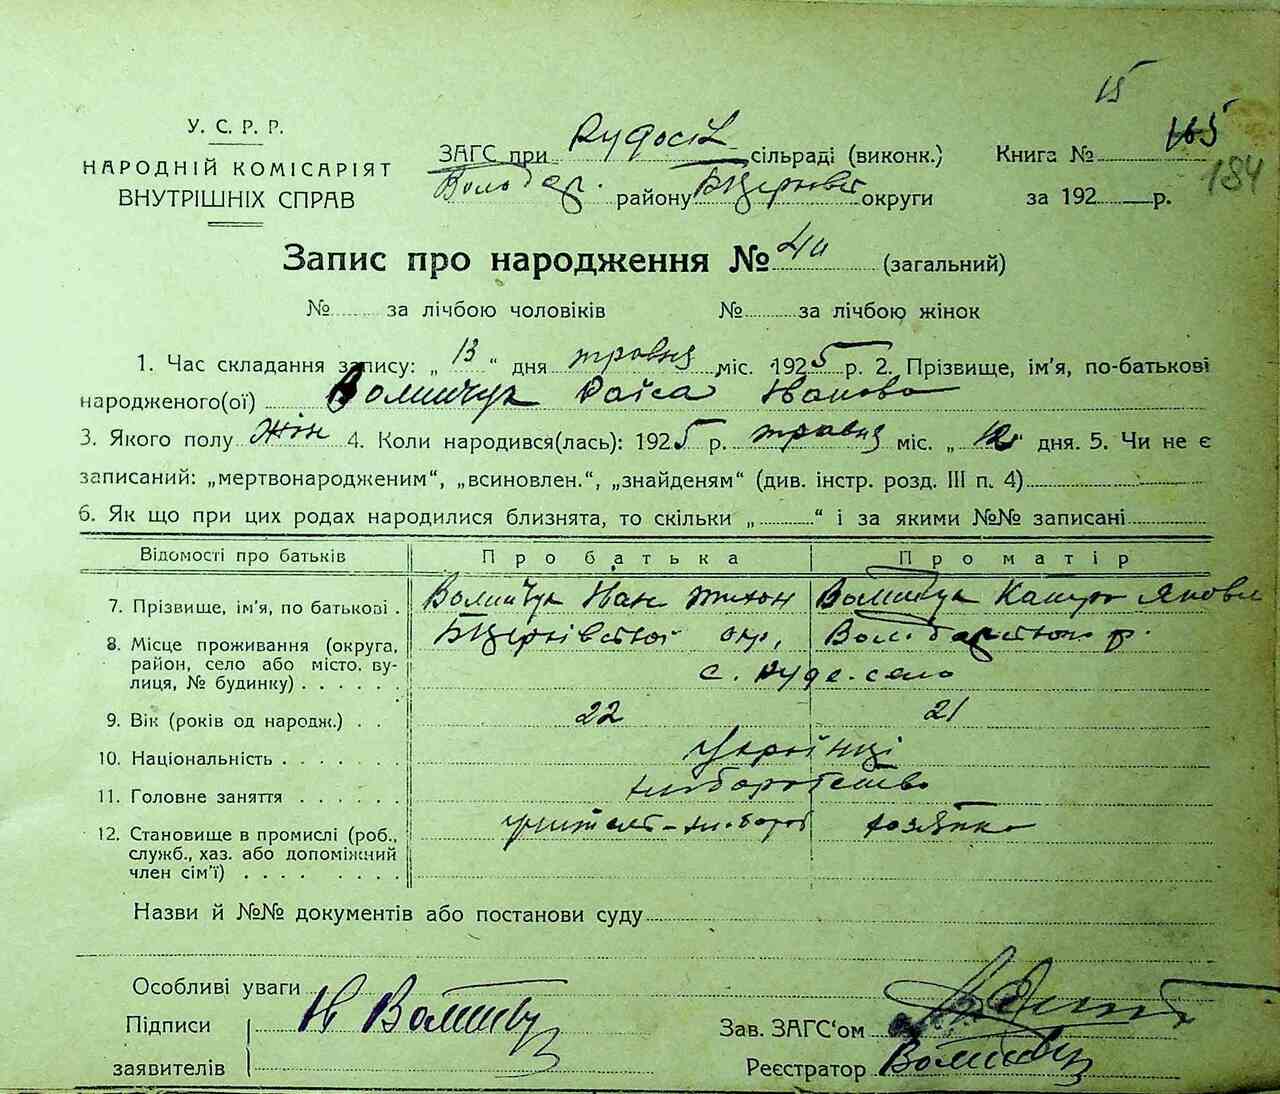 15
У. С. Р. Р.
НАРОДНІЙ КОМІСАРІЯТ
ВНУТРІШНІХ СПРАВ
ЗАГС при Рудосіл сільраді (виконк.) Книга № 165
184
Волод р. району БЦерківс округи за 192 р.
Запис про народження № (загальний)
№ за лічбою чоловіків № за лічбою жінок
1. Час складання запису: „ 13 “ дня травня міс. 1925 р. 2. Прізвище, ім'я, по-батькові
народженого(ої) Раїса Іванова
3. Якого полу жін 4. Коли народився(лась): 1925 р. травня міс. „ 12 “ дня. 5. Чи не є
записаний: „мертвонародженим“, „всиновлен.“, „знайденям“ (див. інстр. розд. III п. 4)
6. Як що при цих родах народилися близнята, то скільки „ “ і за якими №№ записані
Відомості про батьків Про батька Про матір
7. Прізвище, ім'я, по батькові . Іван Тихон Яковл
8. Місце проживання (округа, БЦерківської окр, Володарського р.
район, село або місто, ву- с. Руде-село
лиця, № будинку) . . . . . .
9. Вік (років од народж.) . . 22 21
10. Національність . . . . . . . Українці
11. Головне заняття . . . . . . хліборобство
12. Становище в промислі (роб., хлібороб хозяйка
служб., хаз. або допоміжний
член сім'ї) . . . . . . . .
Назви й №№ документів або постанови суду
Особливі уваги
Підписи
заявителів
Зав. ЗАГС'ом
Реєстратор